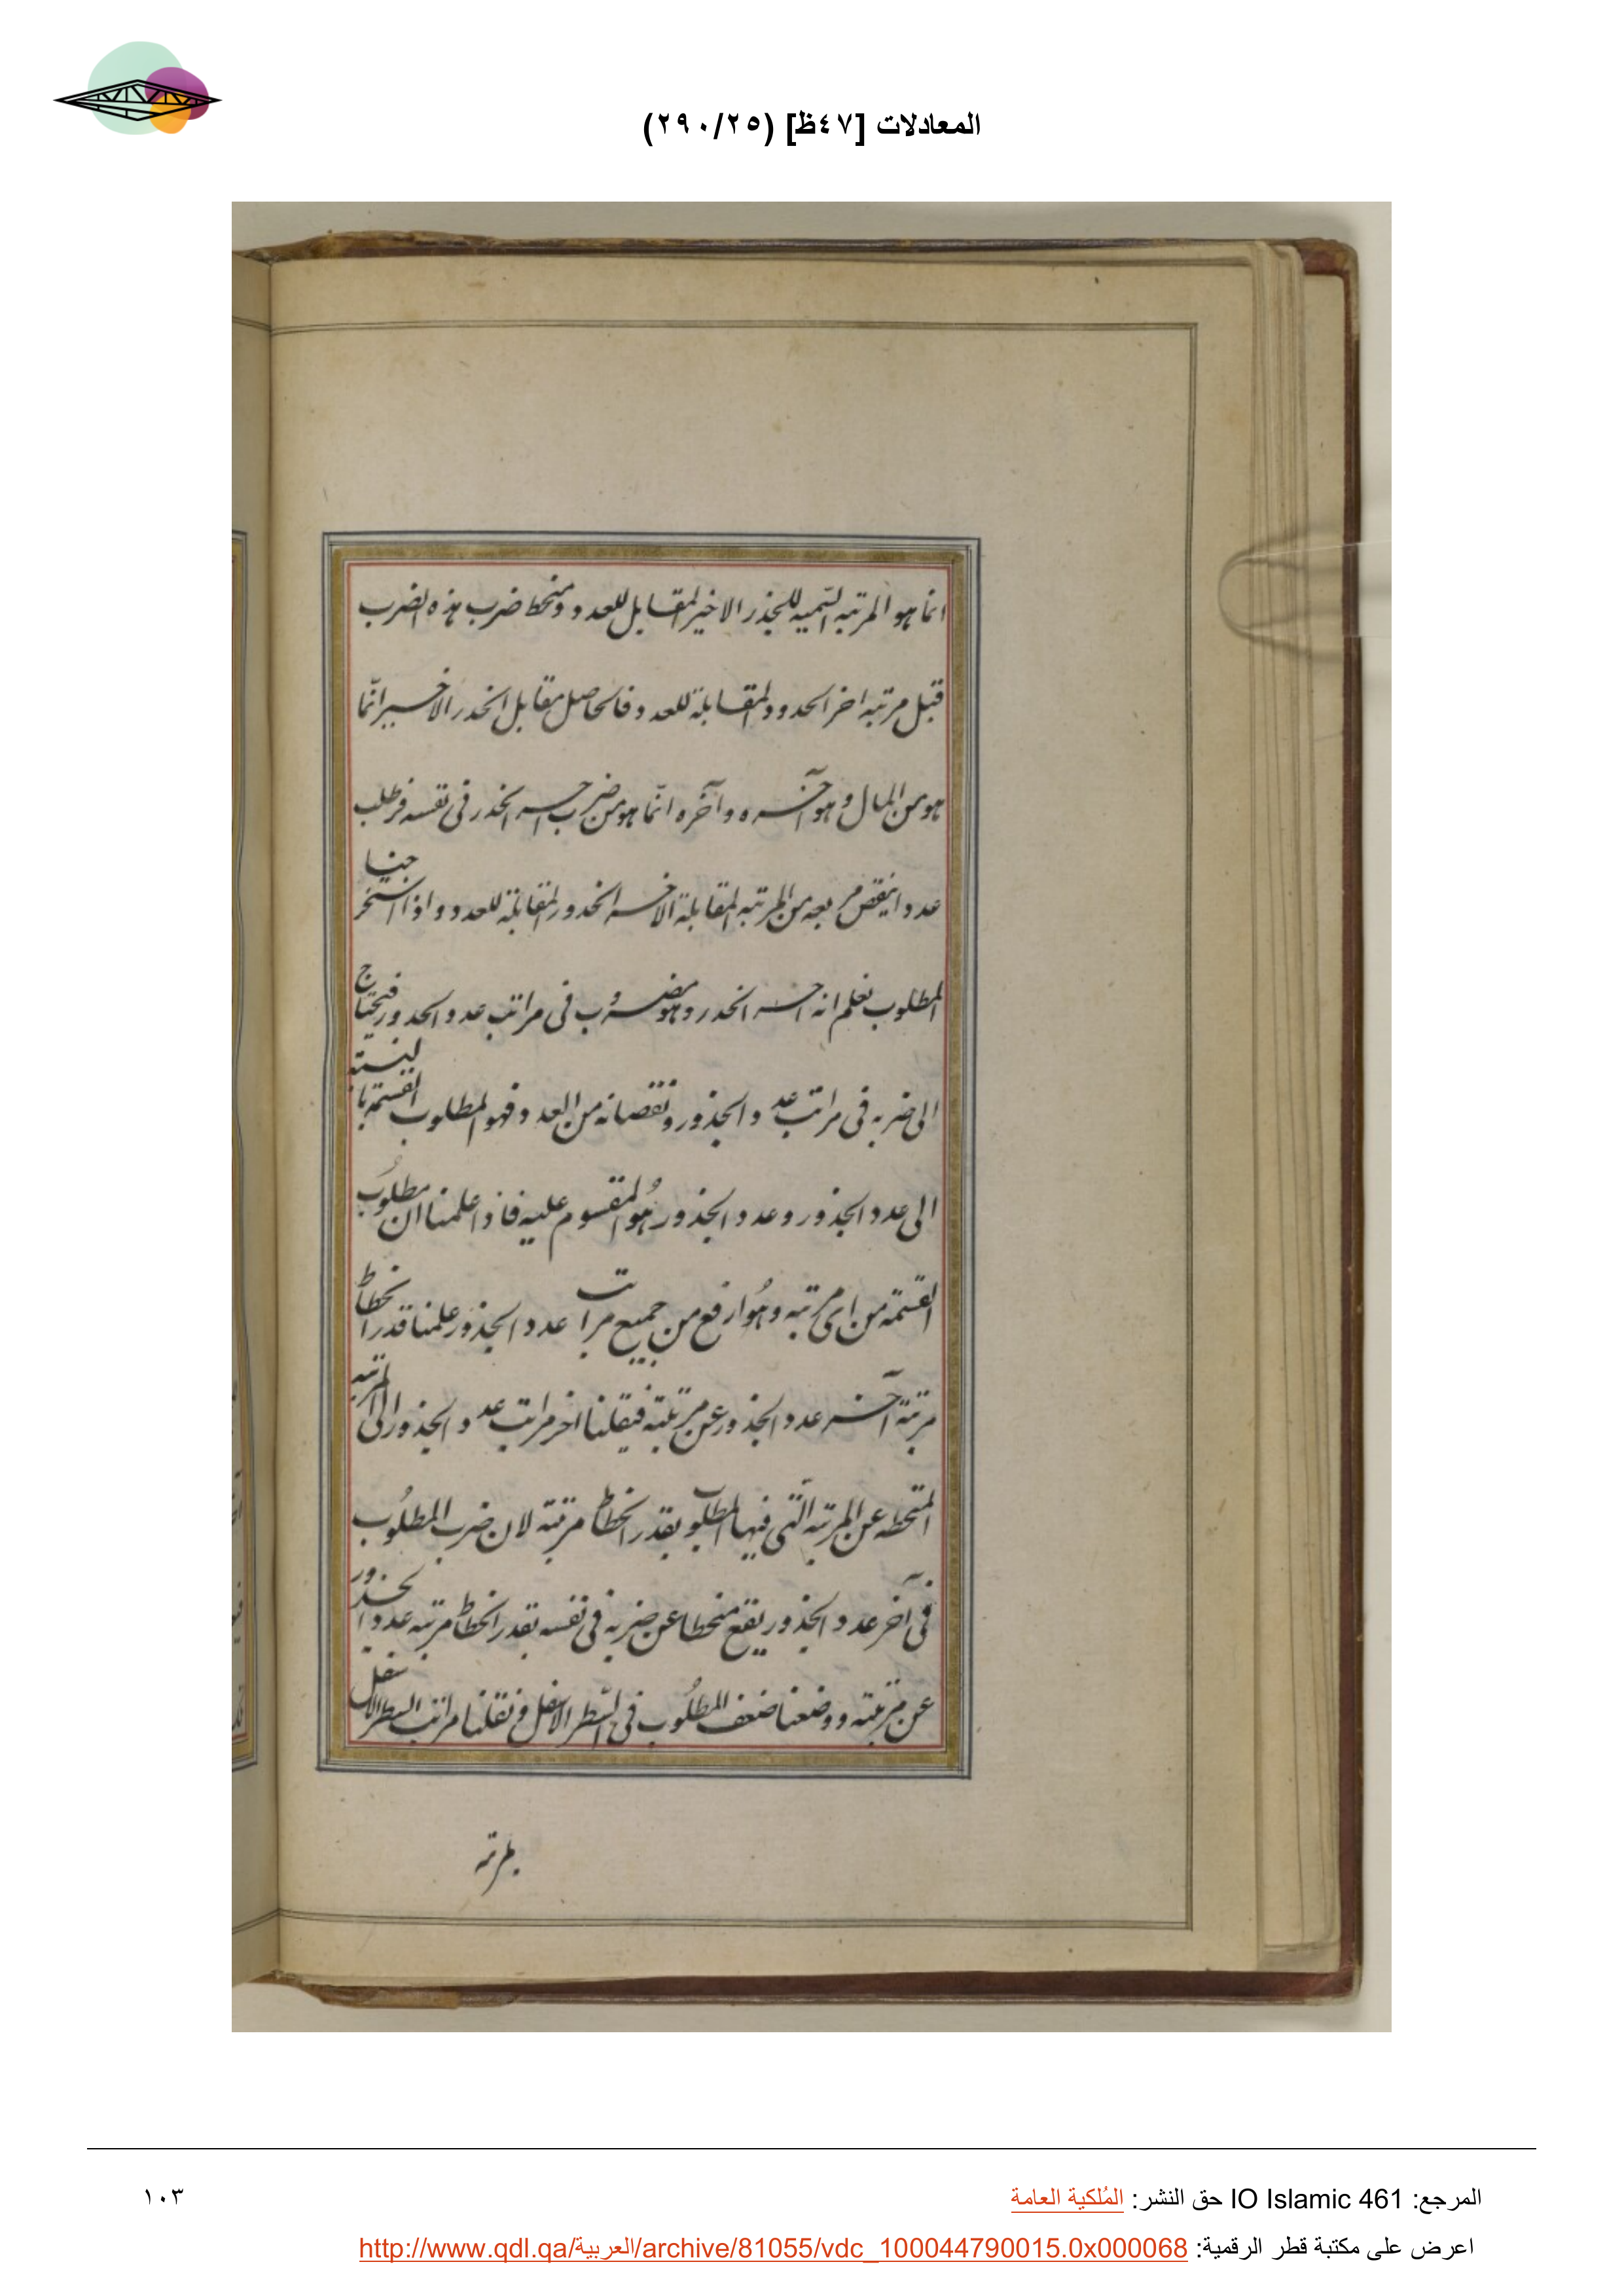 المعادلات [٤٧ظ] (٢٩٠/٢٥)
انما هو المرتبه السميه للجذر الاخير المقابل للعدد ومنحط ضرب هذه الضرب
قبل مرتبه اخر الجذور المقابلة للعدد فالحاصل مقابل الجذر الاخير انّما
هو من المال و هو آخره وآخره انّما هو من ضرب آخر الجذر فى نفسه فنطلب
عددا ينقص مربعه من المرتبه المقابلة لاخر الجذور المقابلة للعدد واذا استخرجنا
المطلوب نعلم انه آخر الجذر وهو مضروب فى مراتب عدد الجذور فيحتاج
الى ضربه فى مراتب عدد الجذور ونقصانه من العدد فهو المطلوب القسمة بالنسبة
الى عدد الجذور وعدد الجذور هُو المقسوم عليه فاذا علمنا ان مطلوب
القسمة من اى مرتبه وهُو ارفع من جميع مراتب عدد الجذور علمنا قدر انحطاط
مرتبة آخر عدد الجذور عن مرتبته فينقلنا اخر مراتب عدد الجذور الى المرتبه
المنحطه عن المرتبه الّتى فيها المطلوب بقدر انحطاط مرتبته لان ضرب المطلُوب
فى آخر عدد الجذور يقع منحطا عن ضربه فى نفسه بقدر انحطاط مرتبه عدد الجذور
عن مرتبته ووضعنا ضعف المطلُوب فى السّطر الاسفل ونقلنا مراتب السطر الاسفل
بمرتبه
المرجع: IO Islamic 461 حق النشر: المُلكية العامة
١٠٣
اعرض على مكتبة قطر الرقمية: http://www.qdl.qa/العربية/archive/81055/vdc_100044790015.0x000068